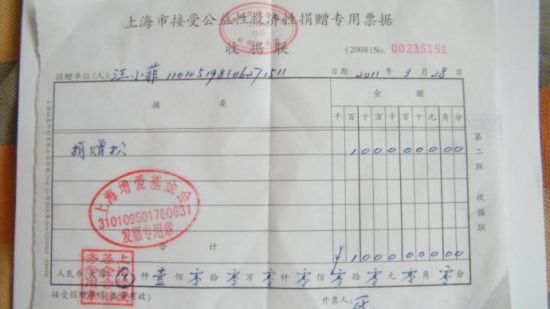 上海市接受公益性救济性捐赠专用票据
收据联
(2008)No. 00235151
捐赠单位(人): 汪小菲 110105198106271511
日期: 2011 年 3 月 28 日
摘要
金额
千 百 十 万 千 百 十 元 角 分
捐赠款
1 0 0 0 0 0 0 0 0
上海增爱基金会
310109501780631
发票专用章
合计
¥ 1 0 0 0 0 0 0 0 0
人民币(大写) 仟 壹 佰 零 拾 零 万 零 仟 零 佰 零 拾 零 元 零 角 零 分
接受捐赠单位(盖章有效)
开票人:
第二联 收据联